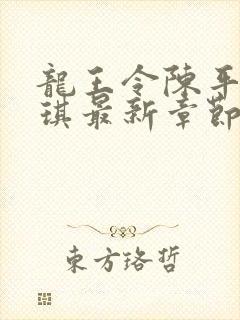 龍王令陳平
琪最新章節
東方珞哲